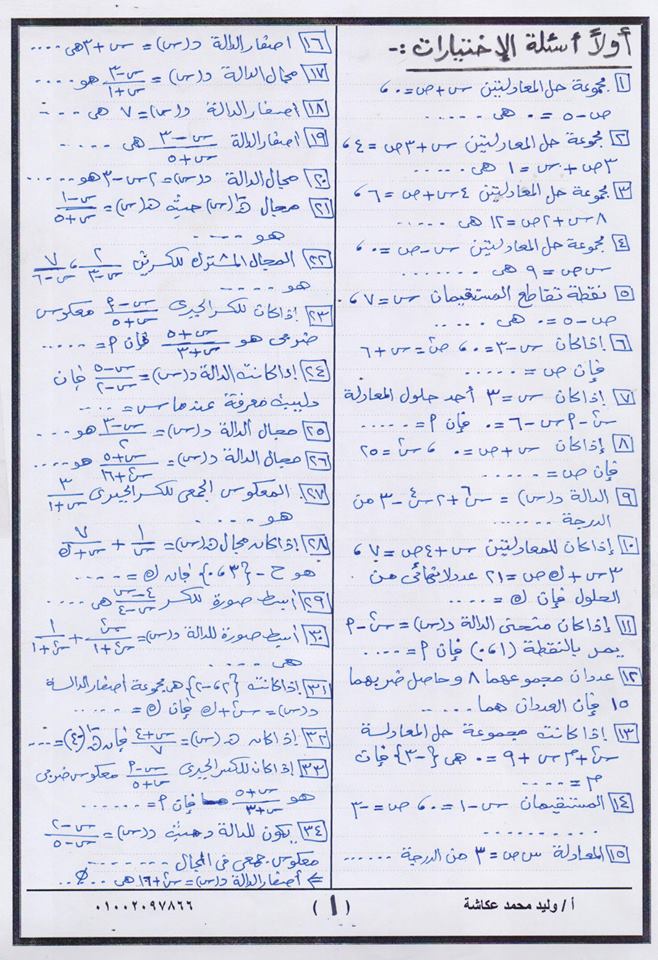 أولاً أسئلة الإختيارات :-
١ مجموعة حل المعادلتين س + ص = ٠ ،
ص - ٥ = ٠ هى .....
٢ مجموعة حل المعادلتين س + ٣ص = ٤ ،
٣ص + س = ١ هى .....
٣ مجموعة حل المعادلتين ٤س + ص = ٦ ،
٨س + ٢ص = ١٢ هى .....
٤ مجموعة حل المعادلتين س - ص = ٠ ،
س ص = ٩ هى .......
٥ نقطة تقاطع المستقيمان س = ٧ ،
ص - ٥ = ٠ هى ......
٦ إذا كان س - ٣ = ٠ ، ص² = س + ٦
فإن ص = ......
٧ إذا كان س = ٣ أحد حلول المعادلة
س² - م س - ٦ = ٠ فإن م = .....
٨ إذا كان س + ص = ٠ ، س² = ٢٥
فإن ص = ......
٩ الدالة د(س) = س⁶ + ٢س⁴ - ٣ من
الدرجة .....
١٠ إذا كان للمعادلتين س + ٤ص = ٧ ،
٣س + ك ص = ٢١ عدد لا نهائى من
الحلول فإن ك = ....
١١ إذا كان منحنى الدالة د(س) = س² - م
يمر بالنقطة (١ ، ٠) فإن م = ....
١٢ عددان مجموعهما ٨ وحاصل ضربهما
١٥ فإن العددان هما .....
١٣ إذا كانت مجموعة حل المعادلة
س² + م س + ٩ = ٠ هى {-٣} فإن
م = ....
١٤ المستقيمان س - ١ = ٠ ، ص = -٣
..........
١٥ المعادلة س ص = ٣ من الدرجة ......
١٦ اصفار الدالة د(س) = س + ٣ هى ....
١٧ مجال الدالة د(س) = (س - ٣)/(س + ١) هو ....
١٨ أصفار الدالة د(س) = ٧ هى ....
١٩ أصفار الدالة (س - ٣)/(س + ٥) هى ....
٢٠ مجال الدالة د(س) = ٢س - ٣ هو .....
٢١ مجال ن⁻¹(س) حيث ن(س) = (س - ١)/(س + ٥)
هو ....
٢٢ المجال المشترك للكسرين ٢/(س - ٣) ، ٧/(س - ٦)
هو .....
٢٣ إذا كان للكسر الجبرى (س - م)/(س + ٥) معكوس
ضربى هو (س + ٥)/(س + ٣) فإن م = ......
٢٤ إذا كانت الدالة د(س) = (س - ٥)/(س - ٢) فإن
د ليست معرفة عندما س = ....
٢٥ مجال الدالة د(س) = (س - ٣)/٢ هو ....
٢٦ مجال الدالة د(س) = (س + ٥)/(س² + ١٦) هو ....
٢٧ المعكوس الجمعى للكسر الجبرى ٣/(س + ١)
هو ......
٢٨ إذا كان مجال ن(س) = ١/س + ٧/(س + ك)
هو ح - {٣ ، ٠} فإن ك = ....
٢٩ أبسط صورة للكسر (٤ - س)/(س - ٤) هى ....
٣٠ أبسط صورة للدالة د(س) = س²/(س² + ١) + ١/(س² + ١)
هى ....
٣١ إذا كانت {٢ ، -٢} هى مجموعة أصفار الدالة
د(س) = س² + ك فإن ك = ....
٣٢ إذا كان ن(س) = (س + ٤)/٧ فإن ن⁻¹(-٤) = ....
٣٣ إذا كان للكسر الجبرى (س - م)/(س + ٥) معكوس ضربى
هو (س + ٥)/(س + ٣) فإن م = ......
٣٤ يكون للدالة د حيث د(س) = (س - ٢)/(س - ٥)
معكوس جمعى فى المجال ........
⇐ أصفار الدالة د(س) = س² + ١٦ هى ....∅....
أ / وليد محمد عكاشة
( ١ )
٠١٠٠٢٠٩٧٨٦٦